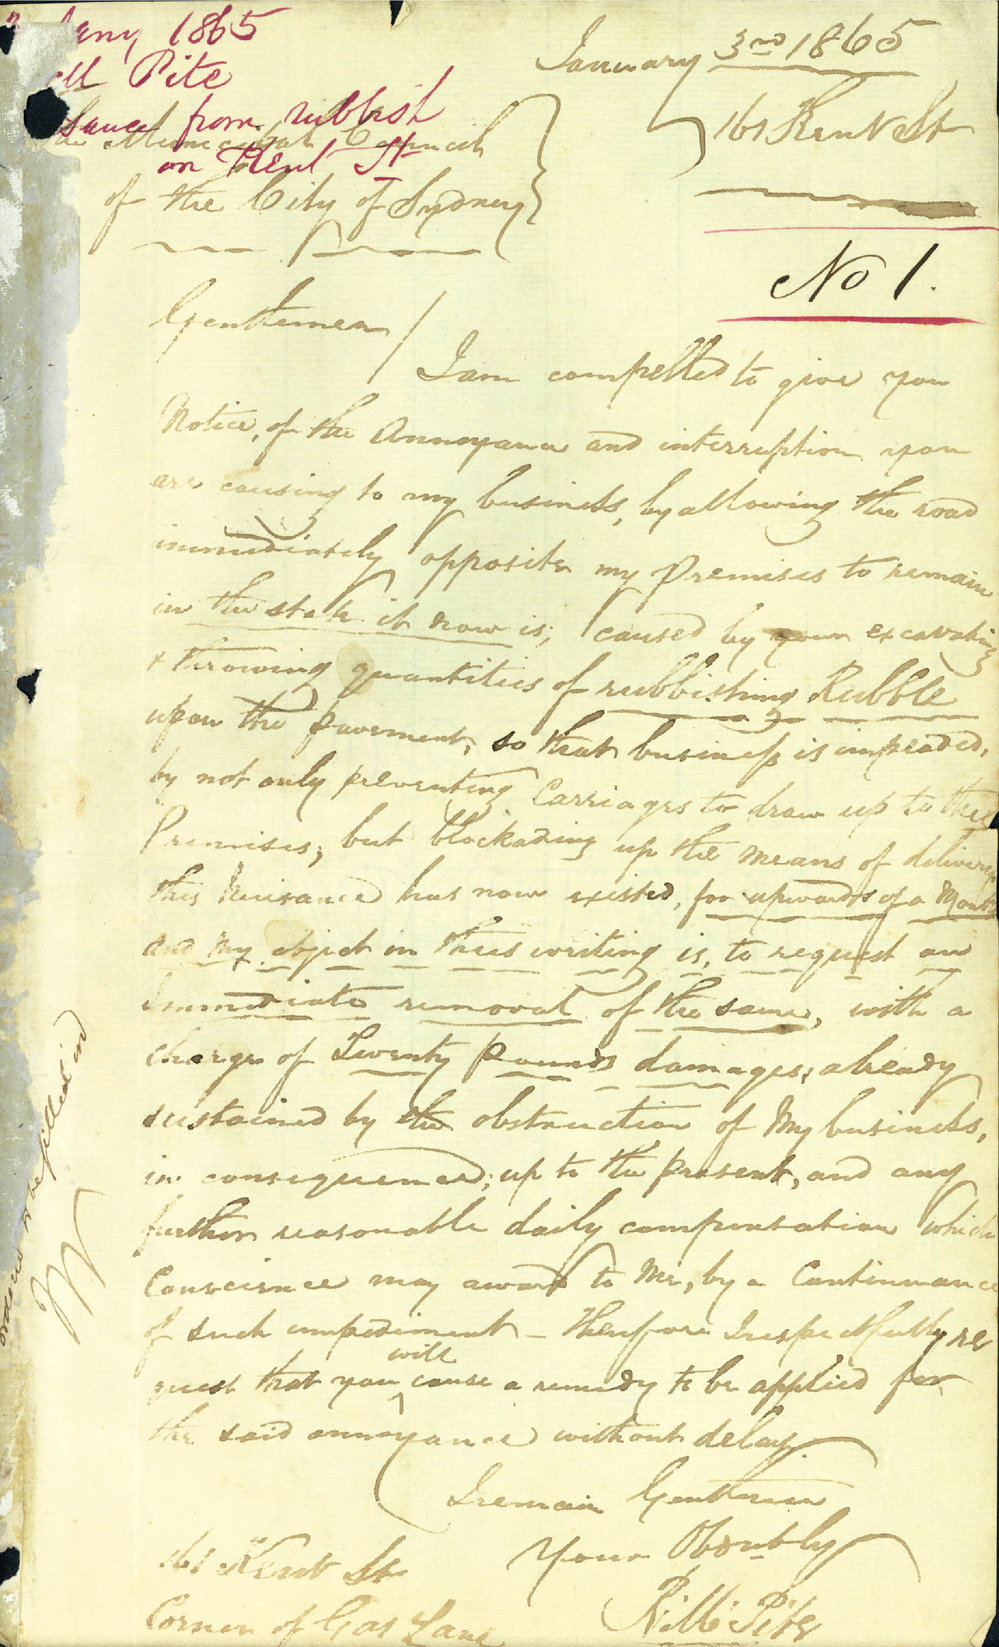 Jany 1865
Pite
from rubbish
on Kent St
January 3rd 1865
161 Kent St
The Municipal Council
of the City of Sydney
No 1.
Gentlemen /
I am compelled to give you
Notice, of the Annoyance and interruption you
are causing to my business, by allowing the road
immediately opposite my Premises to remain
in the state it now is, caused by your excavating
& throwing quantities of rubbishing Rubble
upon the pavement, so that business is impeaded,
by not only preventing Carriages to draw up to the
Premises, but blockading up the means of delivery
this Nuisance has now existed, for upwards of a Month
and My object in thus writing is, to request an
Immediate removal of the same, with a
charge of Twenty Pounds damages, already
sustained by the obstruction of My business,
in consequence, up to the present, and any
further reasonable daily compensation which
Conscience may award to Me, by a Continuance
of such impediment – Therefore I respectfully re
quest that you will cause a remedy to be applied for
the said annoyance without delay
I remain Gentlemen
Your Obdntly
161 Kent St
Corner of Gas Lane
Pite
to be filled in